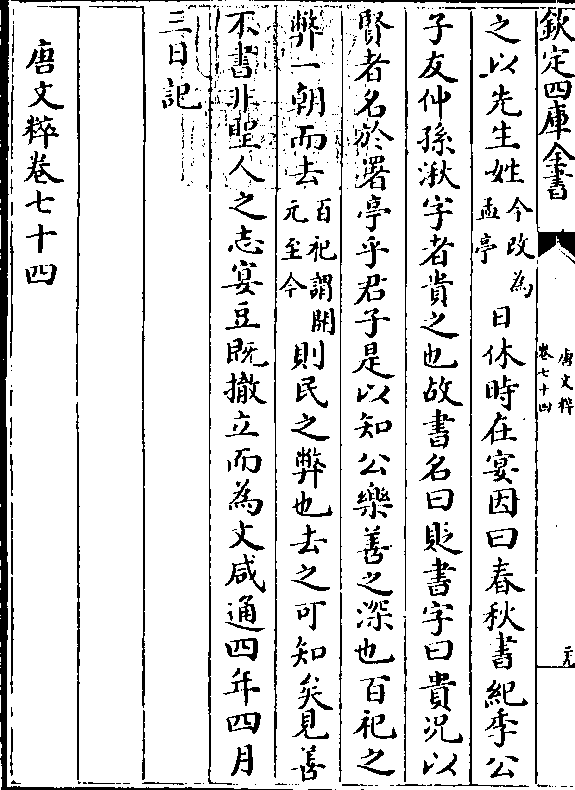 欽定四庫全書
唐文粹
卷七十四
之以先生姓今改為孟亭日休時在宴因曰春秋書紀季公
子友仲孫湫字者貴之也故書名曰貶書字曰貴況以
賢者名於署亭乎君子是以知公樂善之深也百祀之
弊一朝而去百祀謂開元至今則民之弊也去之可知矣見善
不書非聖人之志宴豆既撤立而為文咸通四年四月
三日記
唐文粹卷七十四